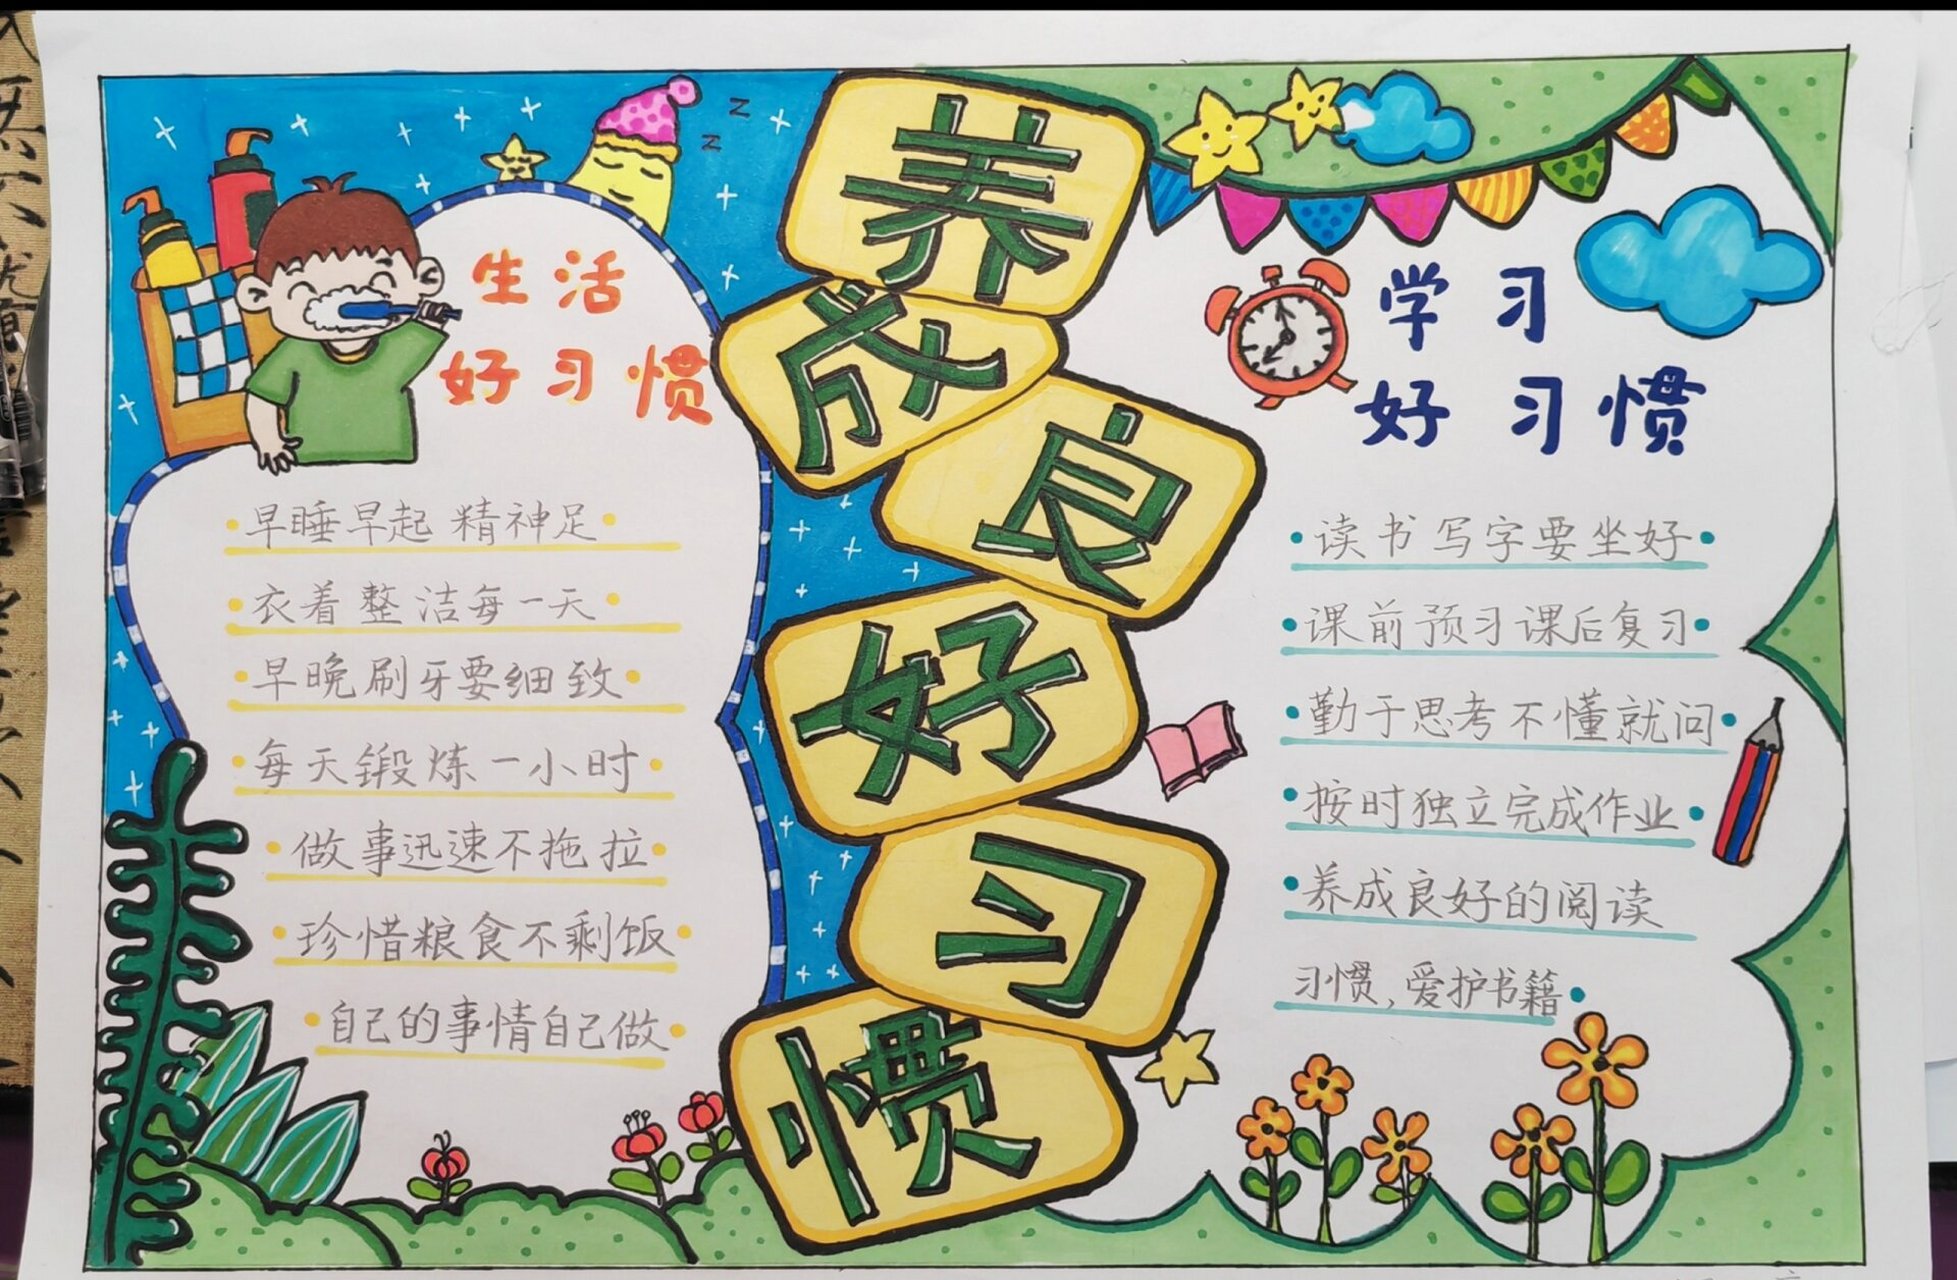 养成良好习惯
生活
好习惯
早睡早起精神足
衣着整洁每一天
早晚刷牙要细致
每天锻炼一小时
做事迅速不拖拉
珍惜粮食不剩饭
自己的事情自己做
学习
好习惯
读书写字要坐好
课前预习课后复习
勤于思考不懂就问
按时独立完成作业
养成良好的阅读
习惯,爱护书籍
z
z